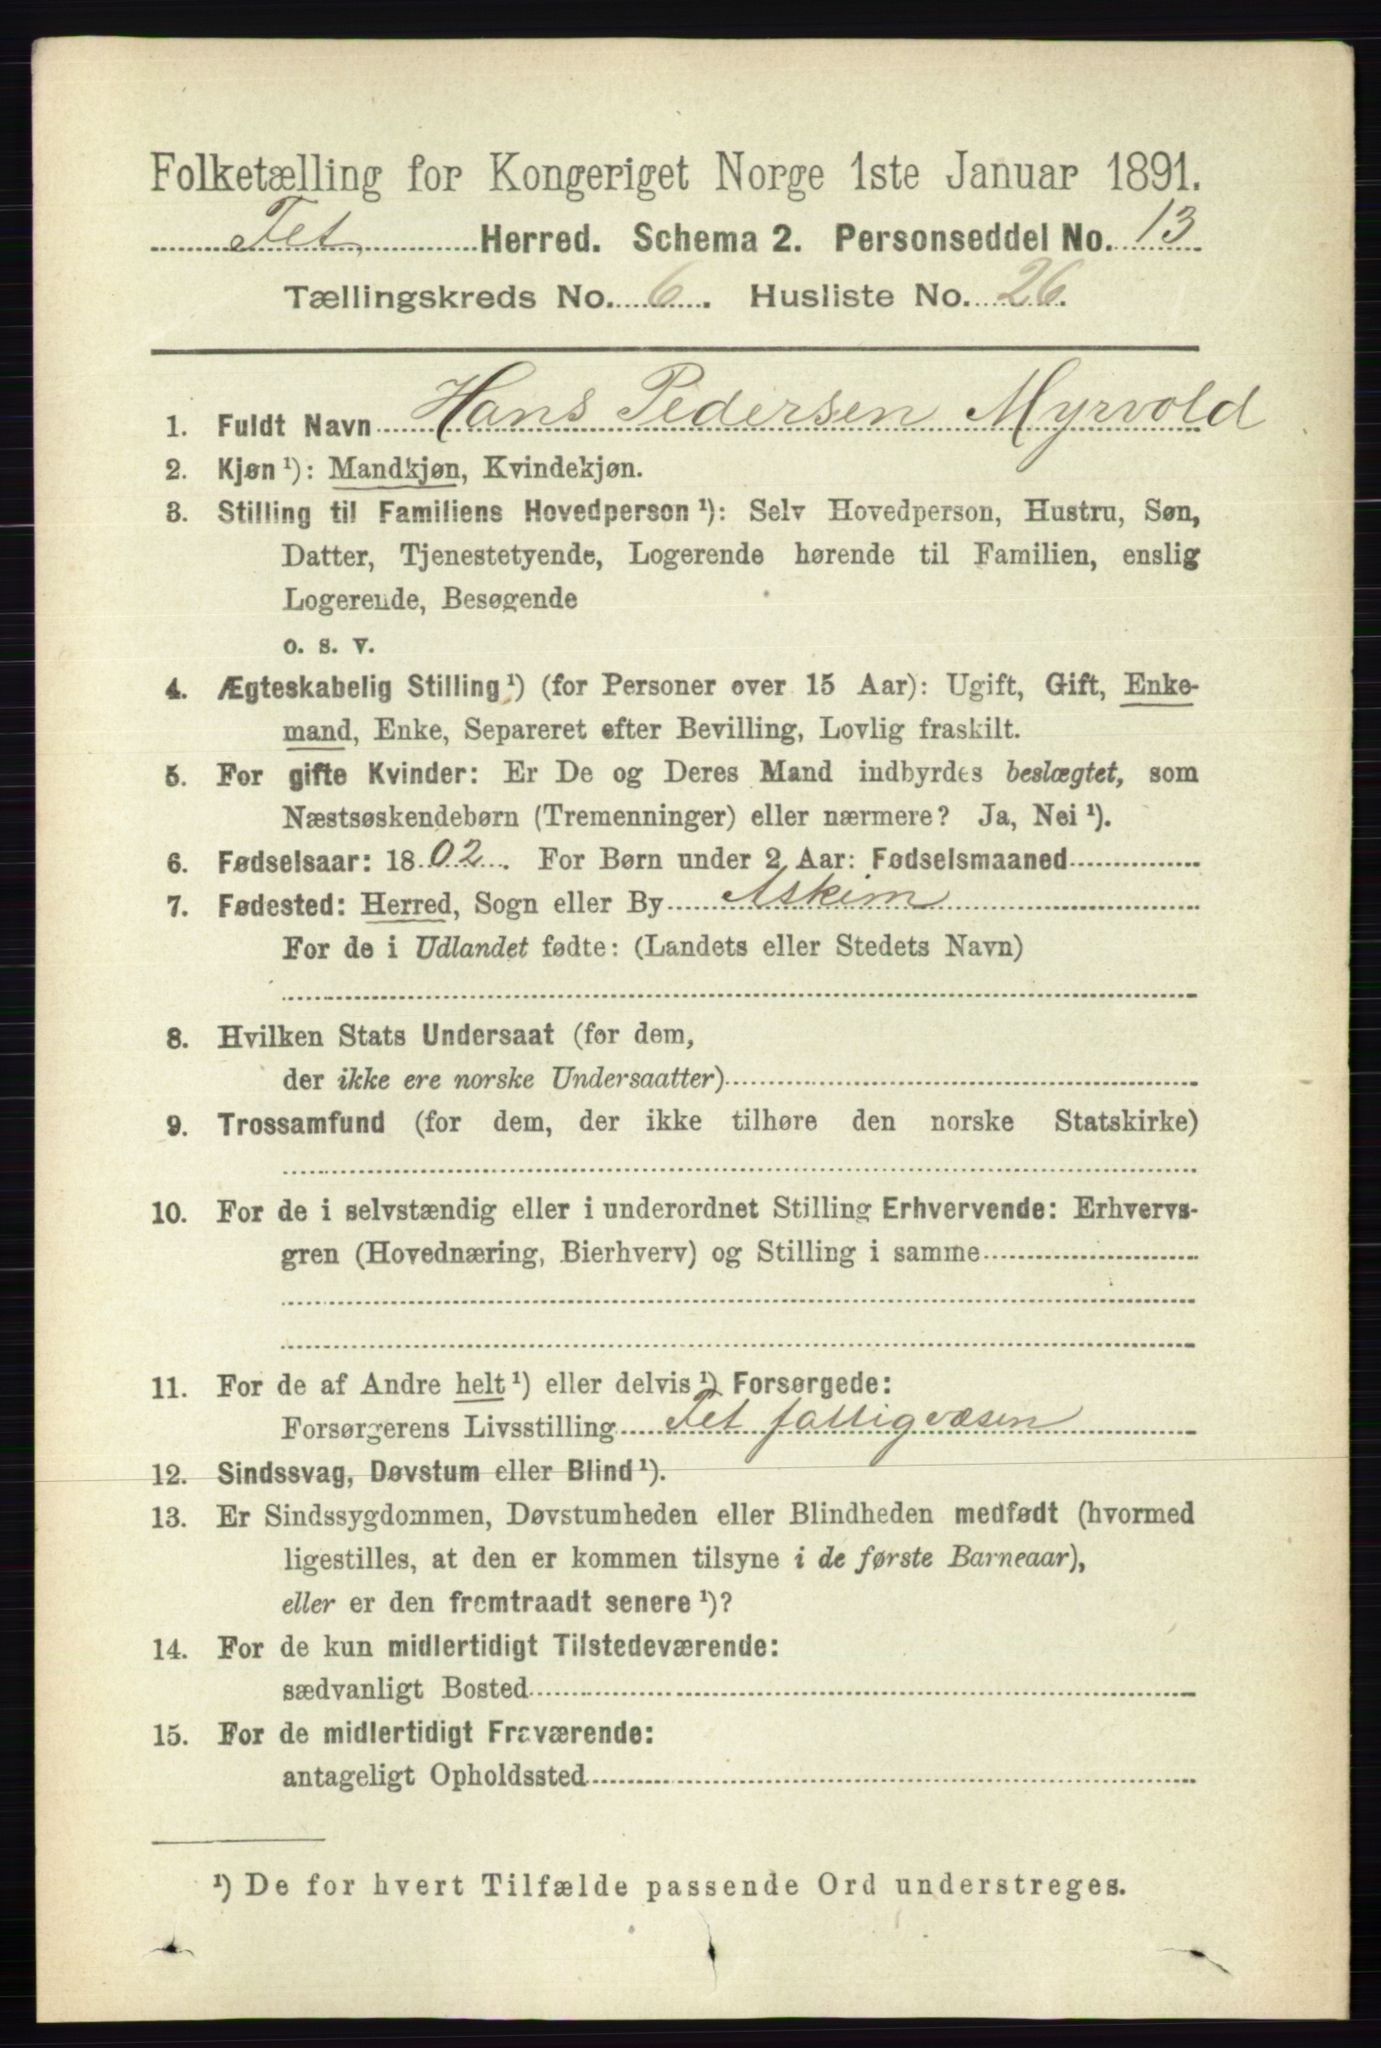 Folketælling for Kongeriget Norge 1ste Januar 1891.
Fet Herred. Schema 2. Personseddel No. 13
Tællingskreds No. 6. Husliste No. 26.
1. Fuldt Navn Hans Pedersen Myrvold
2. Kjøn ¹): Mandkjøn, Kvindekjøn.
3. Stilling til Familiens Hovedperson ¹): Selv Hovedperson, Hustru, Søn,
Datter, Tjenestetyende, Logerende hørende til Familien, enslig
Logerende, Besøgende
o. s. v.
4. Ægteskabelig Stilling ¹) (for Personer over 15 Aar): Ugift, Gift, Enke-
mand, Enke, Separeret efter Bevilling, Lovlig fraskilt.
5. For gifte Kvinder: Er De og Deres Mand indbyrdes beslægtet, som
Næstsøskendebørn (Tremenninger) eller nærmere? Ja, Nei ¹).
6. Fødselsaar: 1802. For Børn under 2 Aar: Fødselsmaaned
7. Fødested: Herred, Sogn eller By Askim
For de i Udlandet fødte: (Landets eller Stedets Navn)
8. Hvilken Stats Undersaat (for dem,
der ikke ere norske Undersaatter)
9. Trossamfund (for dem, der ikke tilhøre den norske Statskirke)
10. For de i selvstændig eller i underordnet Stilling Erhvervende: Erhvervs-
gren (Hovednæring, Bierhverv) og Stilling i samme
11. For de af Andre helt ¹) eller delvis ¹) Forsørgede:
Forsørgerens Livsstilling Fet fattigvæsen
12. Sindssvag, Døvstum eller Blind ¹).
13. Er Sindssygdommen, Døvstumheden eller Blindheden medfødt (hvormed
ligestilles, at den er kommen tilsyne i de første Barneaar),
eller er den fremtraadt senere ¹)?
14. For de kun midlertidigt Tilstedeværende:
sædvanligt Bosted
15. For de midlertidigt Fraværende:
antageligt Opholdssted
¹) De for hvert Tilfælde passende Ord understreges.